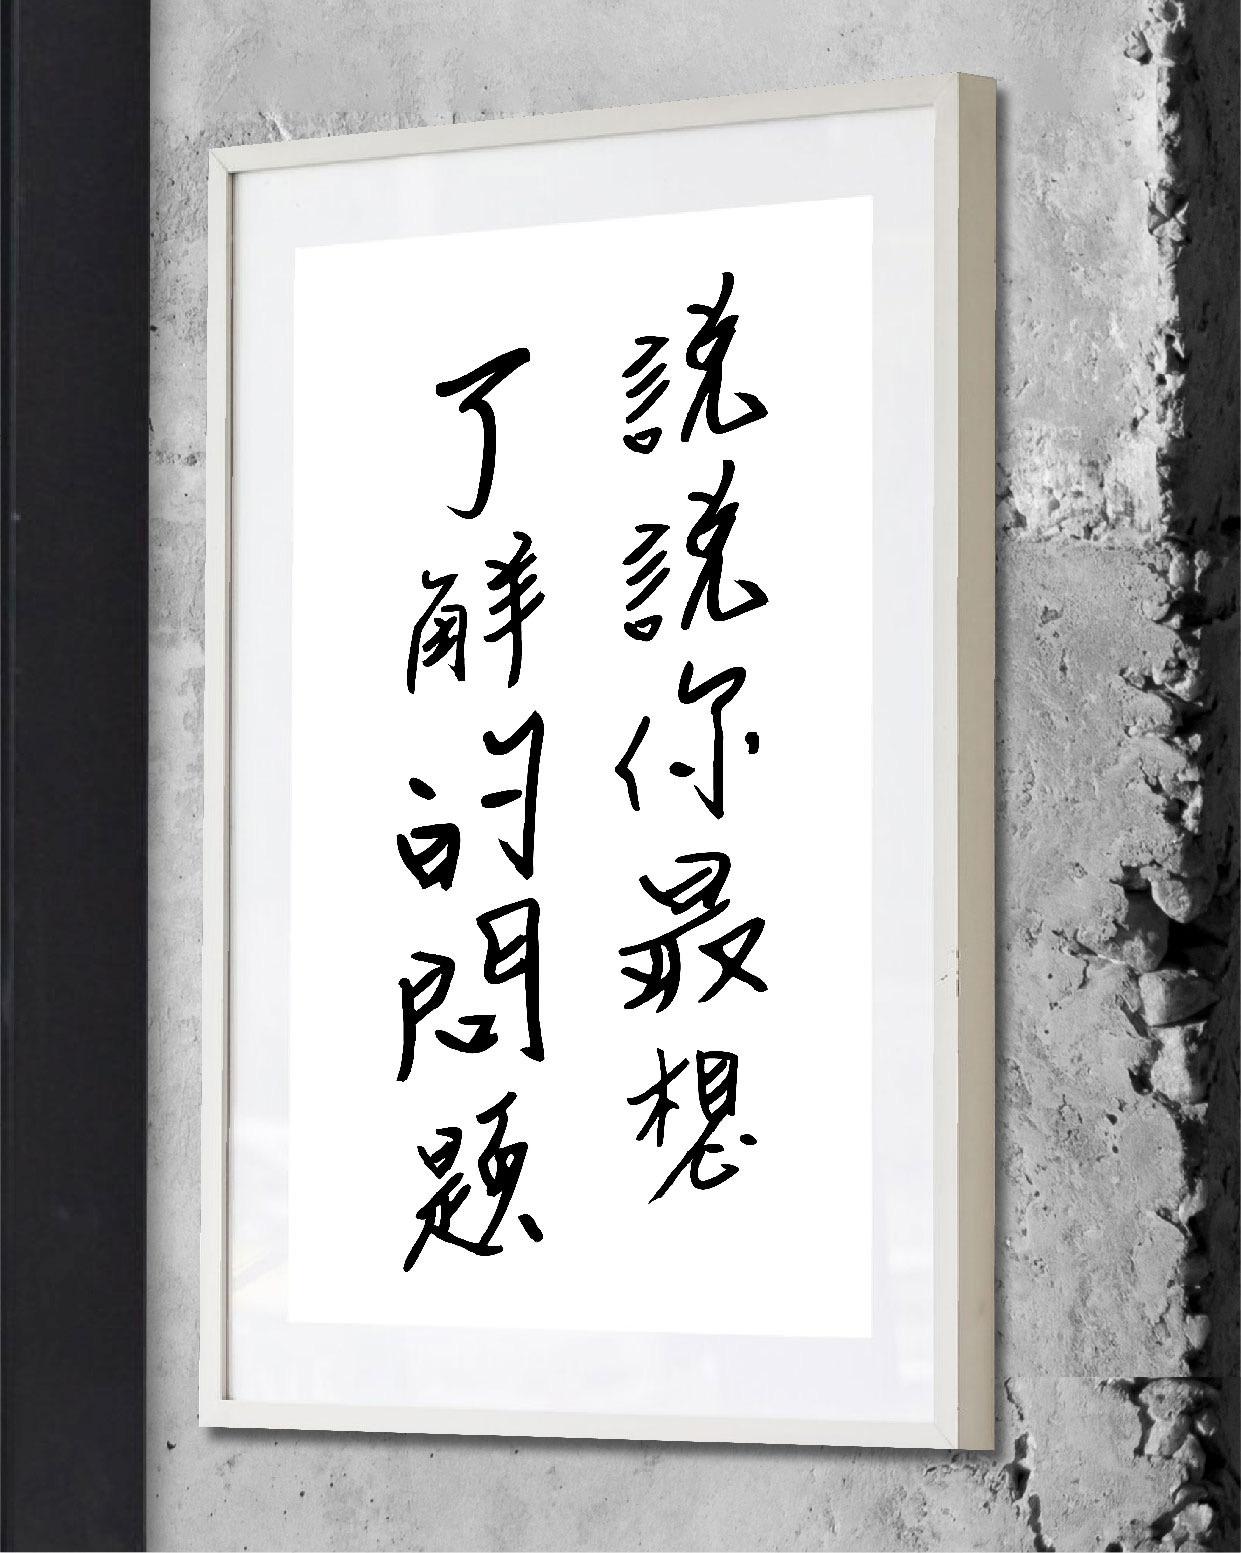 說說你最想
了解的問題